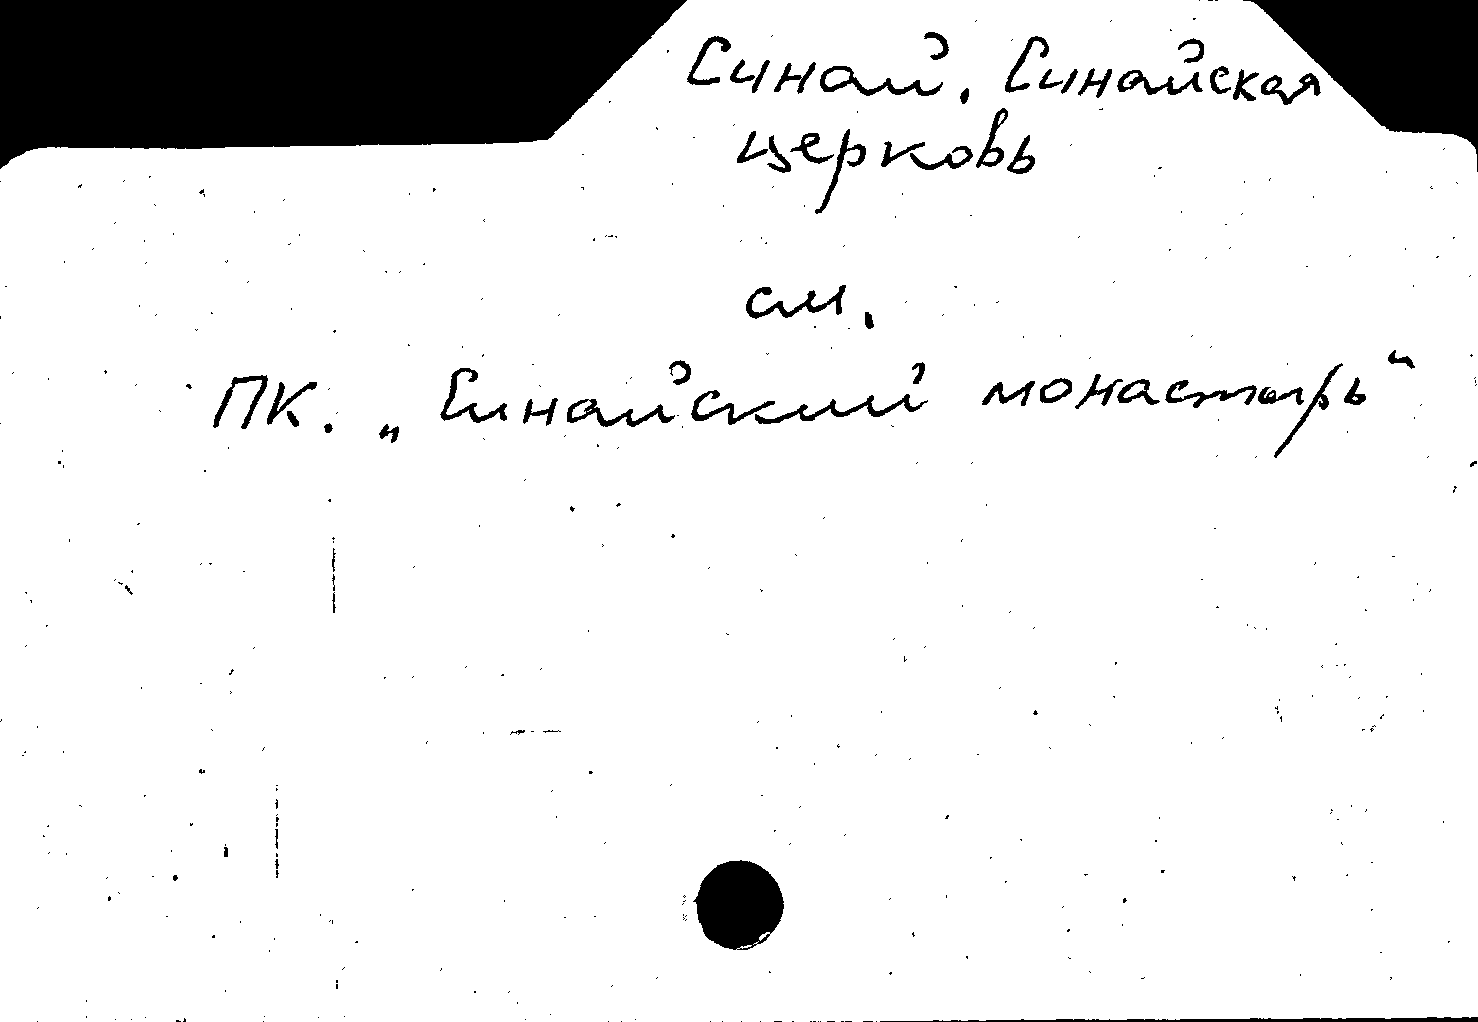 Синай. Синайская
церковь
см.
ПК. „Синайский монастырь“